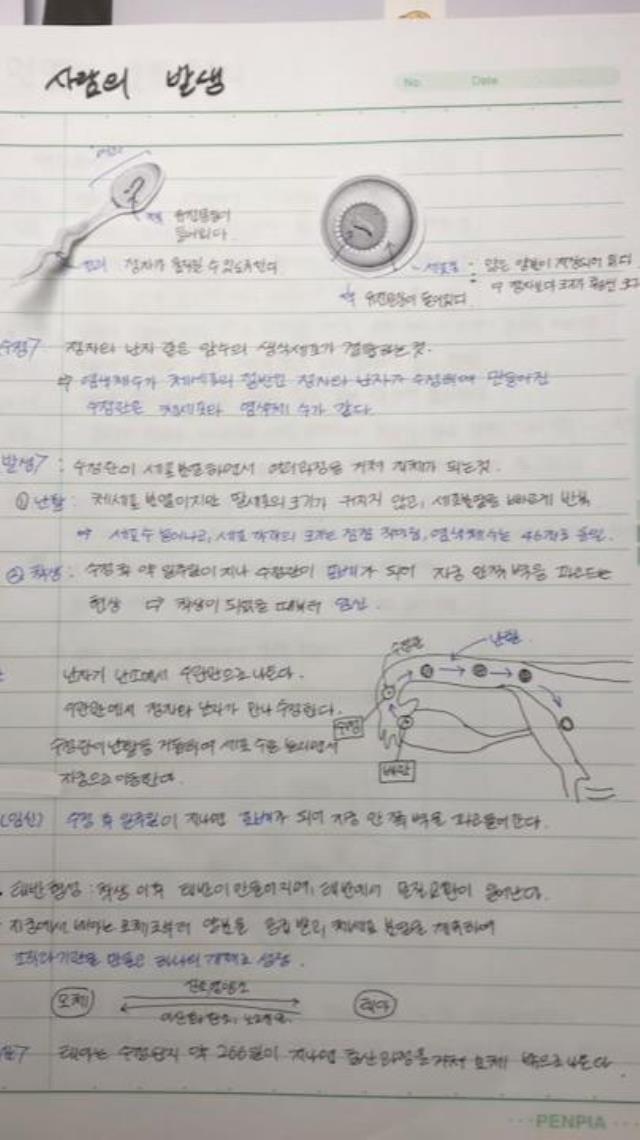 사람의 발생
No. Date
머리
핵 유전물질이
들어있다.
꼬리 정자가 움직일 수 있게 한다
세포질 : 많은 양분이 저장되어 있다
⇨ 정자보다 크기가 훨씬 크
핵 유전물질이 들어있다.
수정7 정자와 난자 같은 암수의 생식세포가 결합하는 것.
⇨ 염색체수가 체세포의 절반인 정자와 난자가 수정하여 만들어진
수정란은 체세포와 염색체 수가 같다.
발생7 : 수정란이 세포분열하면서 여러과정을 거쳐 개체가 되는것.
① 난할 : 체세포 분열이지만 딸세포의 크기가 커지지 않고, 세포분열을 빠르게 반복
⇨ 세포수 늘어나고, 세포 각각의 크기는 점점 작아짐, 염색체수는 46개로 동일.
② 착상 : 수정 후 약 일주일이 지나 수정란이 포배가 되어 자궁 안쪽 벽을 파고드는
현상 ⇨ 착상이 되었을 때부터 임신.
난자가 난소에서 수란관으로 나온다.
수란관에서 정자와 난자가 만나 수정한다.
수정란이 난할을 거듭하여 세포 수를 늘리면서
자궁으로 이동한다.
수정란
난할
수정
배란
(임신) 수정 후 일주일이 지나면 포배가 되어 자궁 안쪽 벽을 파고들어간다.
태반형성 : 착상 이후 태반이 만들어지며, 태반에서 물질교환이 일어난다.
자궁에서 배아는 모체로부터 양분을 공급 받고, 체세포 분열을 계속하여
조직과 기관을 만들은 하나의 개체로 성장.
모체
산소, 영양소
이산화탄소, 노폐물
태아
태아는 수정된지 약 266일이 지나면 출산과정을 거쳐 모체 밖으로 나온다
PENPIA